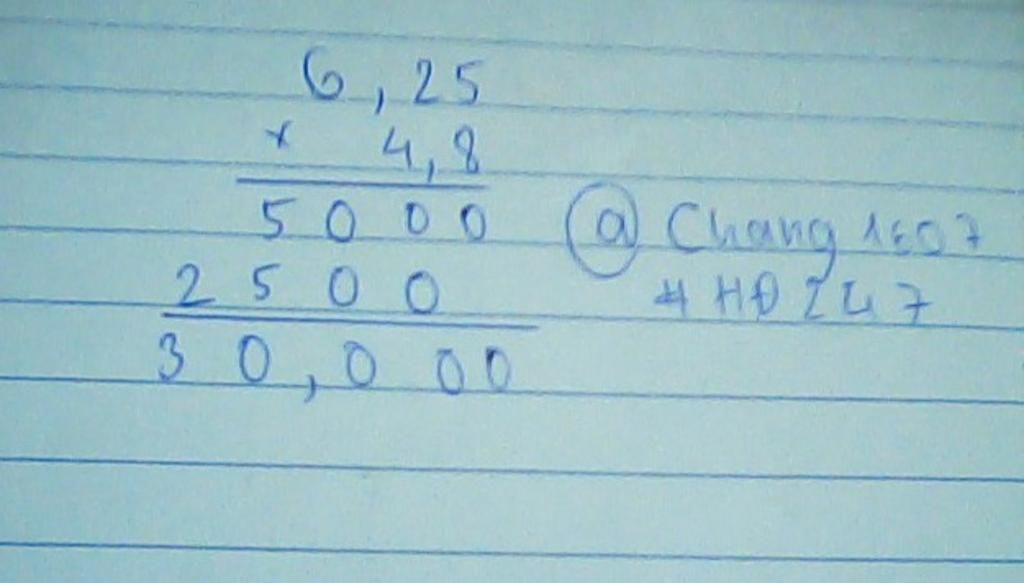 6,25
× 4,8
5000
2500
30,000
@ Chang 1507
#HĐ247